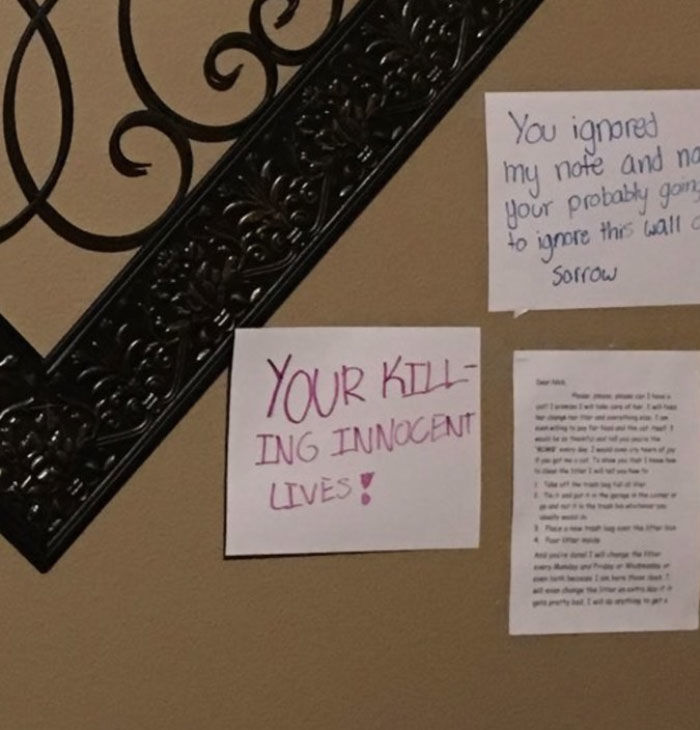 You ignored
my note and
your probably
to ignore this wall
sorrow
YOUR KILL-
ING INNOCENT
LIVES!
Please, please, please can I have a
cat? I promise I will take care of her. I will feed
her change her litter and everything else. I am
even willing to pay for food and the cat itself. I
would be so thankful and tell you you're the
every day. I would even cry tears of joy
if you got me a cat. To show you that I know how
to clean the litter I will tell you how to
1. Take off the trash bag full of litter
2. Tie it and put it in the garage in the corner or
go and put it in the trash bin whichever you
usually would do
3. Place a new trash bag over the litter box
4. Pour litter inside
And you're done! I will change the litter
every Monday and Friday or Wednesday or
even both because I am here those days. I
will even change the litter an extra day if it
gets pretty bad. I will do anything to get a